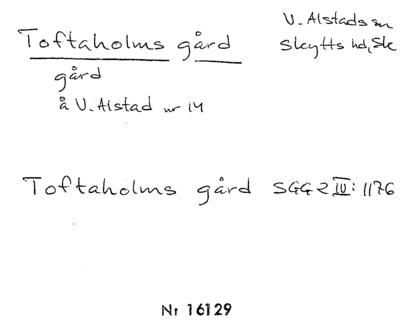 Toftaholms gård
V. Alstads sn
Skytts hd, Sk
gård
å V. Alstad nr 14
Toftaholms gård SGG 2 IV: 1176
Nr 16129